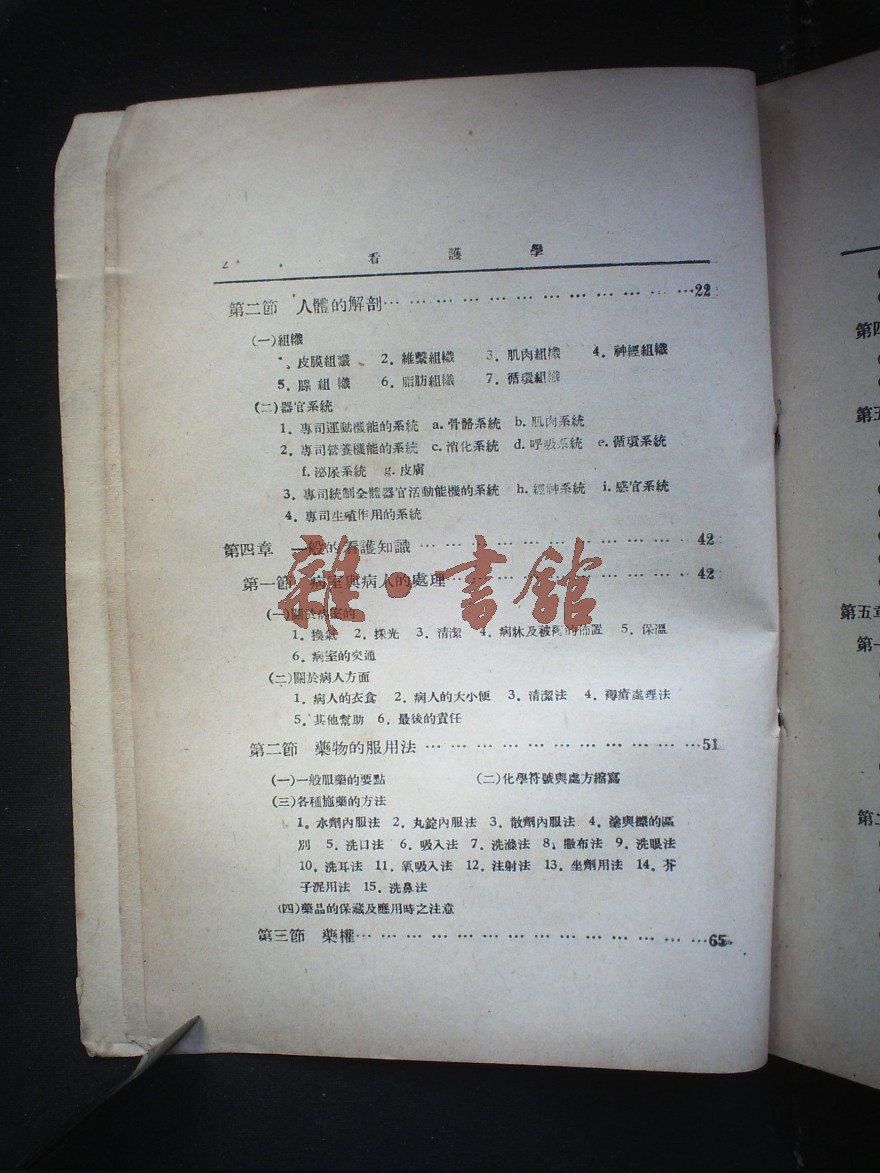 2 看護學
第二節 人體的解剖… … … … … … … … … … … …22
(一)組織
1. 皮膜組織 2. 維繫組織 3. 肌肉組織 4. 神經組織
5. 腺組織 6. 脂肪組織 7. 循環組織
(二)器官系統
1. 專司運動機能的系統 a. 骨骼系統 b. 肌肉系統
2. 專司營養機能的系統 c. 消化系統 d. 呼吸系統 e. 循環系統
f. 泌尿系統 g. 皮膚
3. 專司統制全體器官活動能機的系統 h. 經神系統 i. 感官系統
4. 專司生殖作用的系統
第四章 一般的看護知識 … … … … … … … … … … … 42
第一節 病室與病人的處理… … … … … … … … … … 42
(一)關於病室的
1. 換氣 2. 採光 3. 清潔 4. 病牀及被褥的佈置 5. 保溫
6. 病室的交通
(二)關於病人方面
1. 病人的衣食 2. 病人的大小便 3. 清潔法 4. 褥瘡處理法
5. 其他幫助 6. 最後的責任
第二節 藥物的服用法 … … … … … … … … … … …51
(一)一般服藥的要點 (二)化學符號與處方縮寫
(三)各種施藥的方法
1. 水劑內服法 2. 丸錠內服法 3. 散劑內服法 4. 塗與擦的區
別 5. 洗口法 6. 吸入法 7. 洗滌法 8. 撒布法 9. 洗眼法
10. 洗耳法 11. 氧吸入法 12. 注射法 13. 坐劑用法 14. 芥
子泥用法 15. 洗鼻法
(四)藥品的保藏及應用時之注意
第三節 藥權… … … … … … … … … … … … … …65
雜·書館
第四
第五
第五章
第一
第二